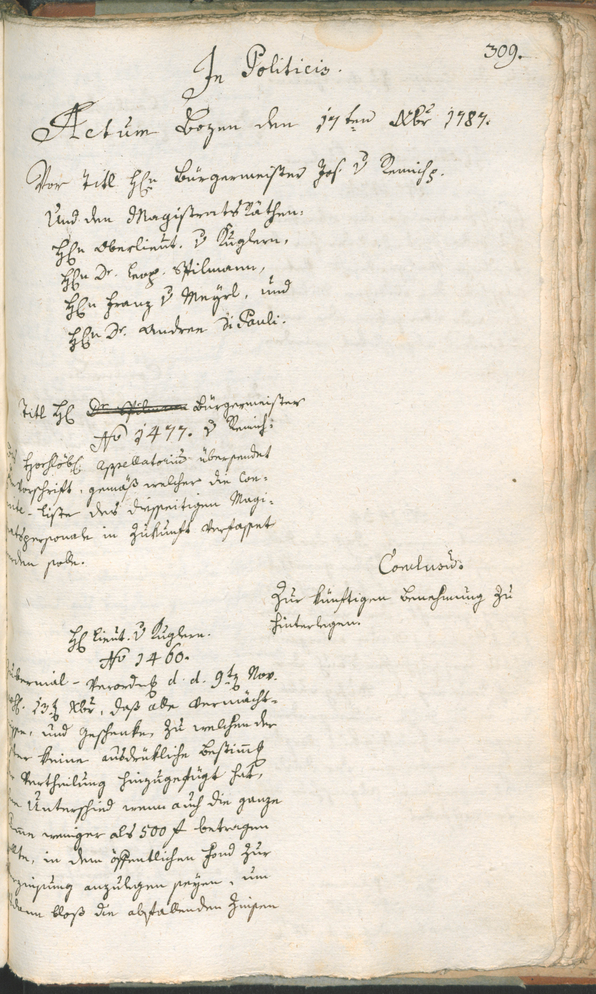 309.
In Politicis.
Actum Bozen den 17ten Xbr 1787.
Vor Titl Hℓn Bürgermeister Jos. v Remich.
Und den Magistrats Räthen:
Hℓn Oberlieut. v Kuglern,
Hℓn Dr. Leop. Spilmann,
Hℓn Franz v Mayrl, und
Hℓn Dr. Andree Di Pauli.
Titl Hℓ Dr. Spilmann Bürgermeister
No 1477. v Remich:
Hochlöbl. Appellatorium übersendet
Vorschrift, gemäß welcher die Con-
liste des diesseitigen Magi-
personale in Zukunft verfasset
den solle.
Conclusum:
Zur künftigen Benehmung zu
hinterlegen.
Hℓ Lieut. v Kuglern.
No 1460.
Gubernial-Verordng d. d. 9t Nov.
13t Xbr, daß alle Vermächt-
und Geschenke, zu welchen der
keine ausdrükliche Bestimg
Vertheilung hinzugefügt hat,
Unterschied wenn auch die ganze
weniger als 500 f betragen
in dem öffentlichen Fond zur
anzulegen seyen, um
dann bloß die abfallenden Zinsen